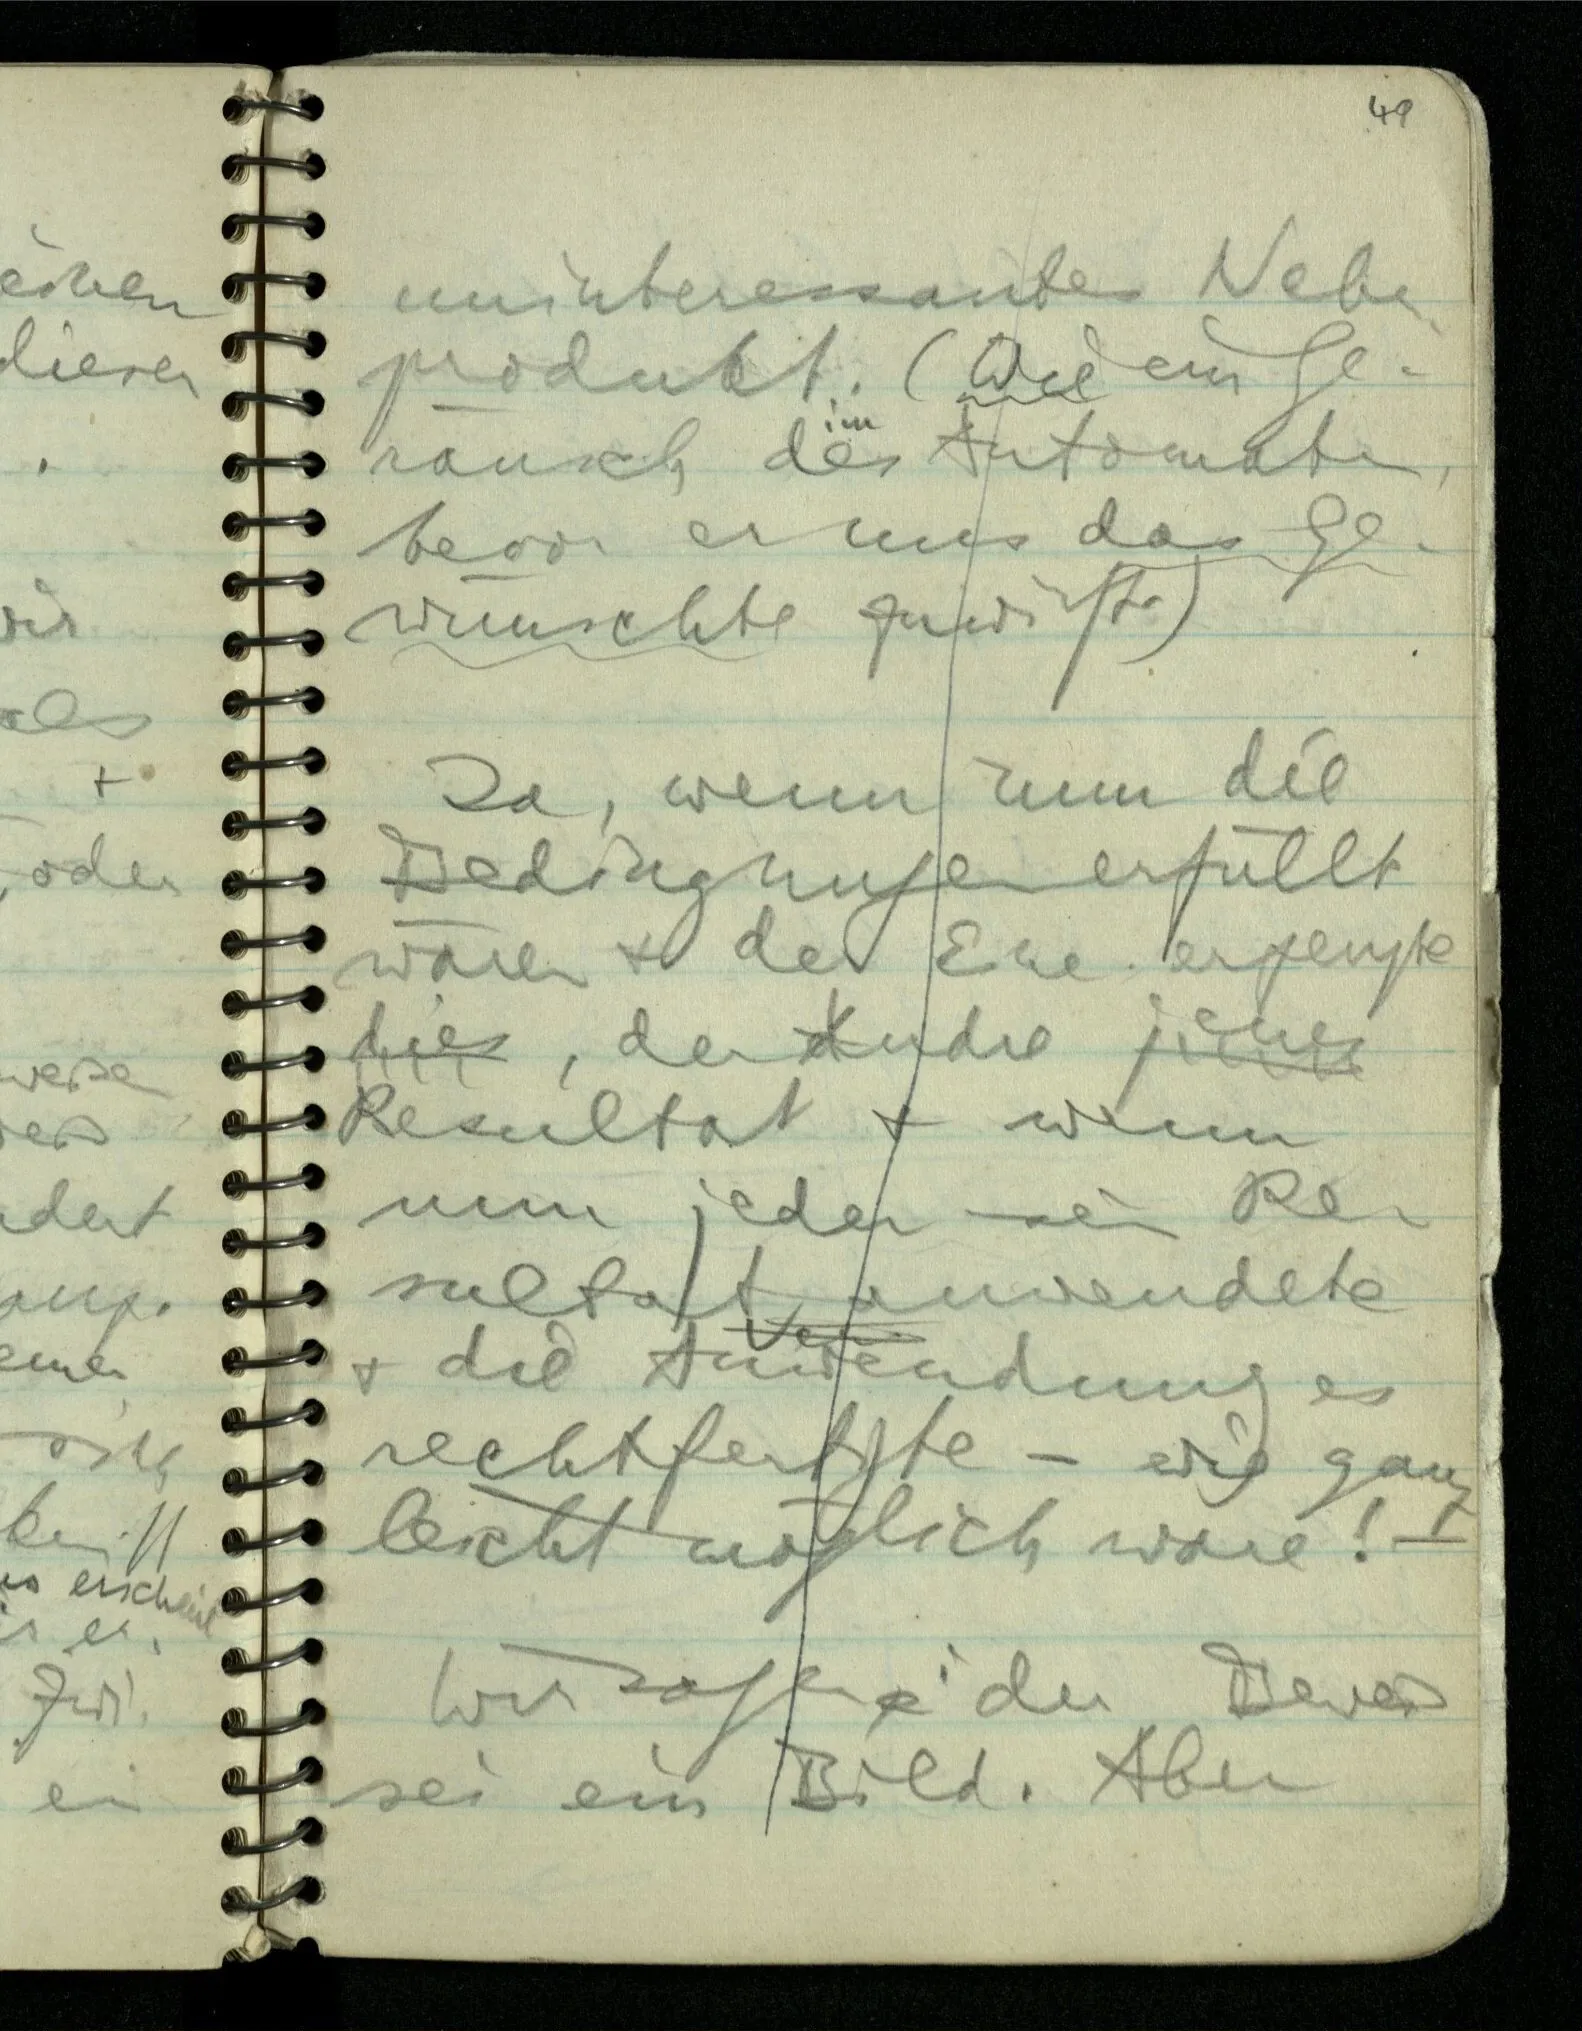 49
uninteressantes Neben-
produkt. (Wie ein Ge-
räusch im des Automaten,
bevor er uns das Ge-
wünschte zuwirft.)
Ja, wenn nun die
Bedingungen erfüllt
wären + der Eine erzeugte
dies, der Andre jenes
Resultat + wenn
nun jeder sein Re-
sultat anwendete
Ver
+ die Anwendung es
rechtfertigte – wie ganz
leicht möglich wäre! –
Wir sagen: der Beweis
sei ein Bild. Aber
dieser
wir
als
+
, oder
weise
dert
einer
erscheint
Zwi-
ein